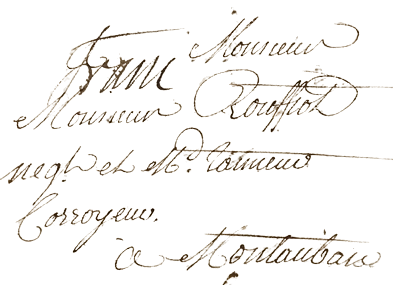 Monsieur
franc
Monsieur Rouffiot
negt. et Md. Tanneur
Corroyeur.
a Montauban